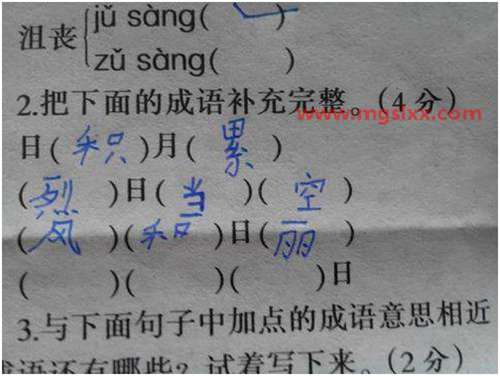 jǔ sàng( )
沮丧
zǔ sàng( )
2.把下面的成语补充完整。(4分)
www.mgslxx.com
日(积)月(累)
(烈)日(当)(空)
(风)(和)日(丽)
( )( )( )日
3.与下面句子中加点的成语意思相近
成语还有哪些？试着写下来。(2分)